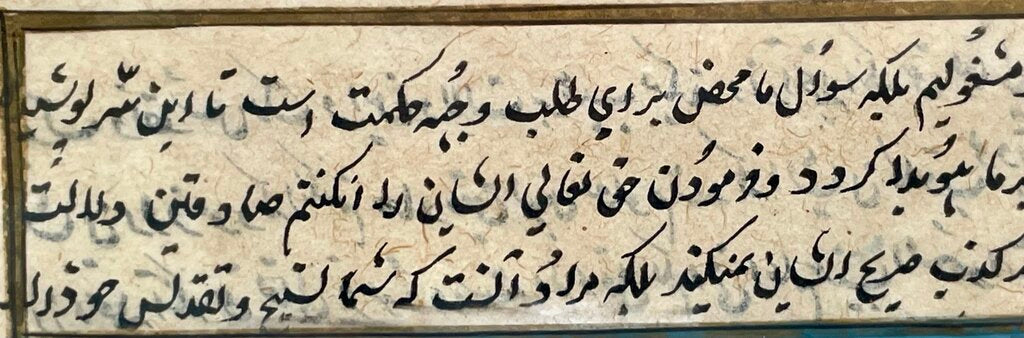 مشغولیم بلکه سوٴال ما محض برای طلب وجه حکمت است تا این سّر پوشیده
بر ما هویدا کردد و فرمودن حق تعالی ایشان را انکنتم صادقین دلالت
بر کذب صریح ایشان نمیکند بلکه مراد آنست که شما تسبیح و تقدیس خود را